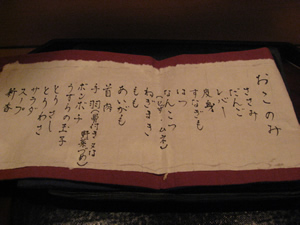 おこのみ
ささみ
だんご
レバー
すなぎも
皮
はつ
なんこつ
ねぎまき
もも
あいがも
首肉
手羽
ボンボチ
うずらの玉子
とりさし
とりわさ
サラダ
スープ